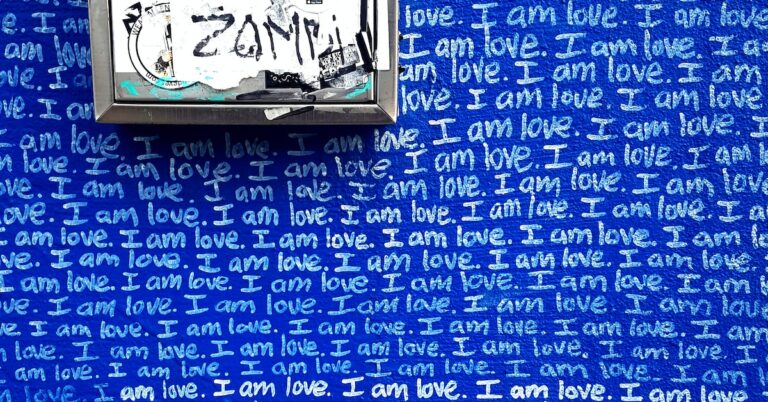 ZOMBi
I am love. I am love. I am love. I am
I am love. I am love. I am love. I am love.
am love. I am love. I am love. I am
love. I am love. I am love. I am love. I am love.
am love. I am love. I am love. I am love. I am love. I am love. I am love.
love. I am love. I am love. I am love. I am love. I am love. I am love.
I am love. I am love. I am love. I am love. I am love. I am love.
love. I am love. I am love. I am love. I am love. I am love. I am
am love. I am love. I am love. I am love. I am love. I am love.
love. I am love. I am love. I am love. I am love. I am love. I am love.
I am love. I am love. I am love. I am love. I am love. I am love.
I am love. I am love. I am love. I am love. I am love. I am
I am love. I am love. I am love. I am love. I am love. I am
love. I am love. I am love. I am love. I am love. I am love. I
love. I am love. I am love. I am love. I am love. I am love.
I am love. I am love. I am love. I am love. I am love. I am love.